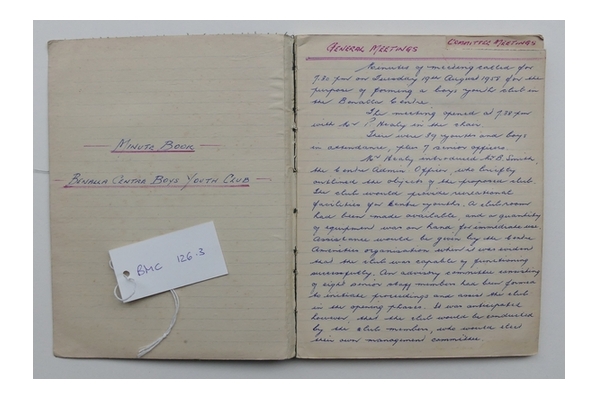 MINUTE BOOK
BENALLA CENTRE BOYS YOUTH CLUB
BMC 126.3
GENERAL MEETINGS
COMMITTEE MEETINGS
Minutes of meeting called for
7.30 pm on Tuesday 19th August 1958 for the
purpose of forming a boys youth club in
the Benalla Centre.
The meeting opened at 7.30 pm
with Mr P Healy in the chair.
There were 39 youths and boys
in attendance, plus 7 senior officers.
Mr Healy introduced Mr B. Smith,
the Centre Admin. Officer, who briefly
outlined the objects of the proposed club.
The club would provide recreational
facilities for Centre youths. A clubroom
had been made available, and a quantity
of equipment was on hand for immediate use.
Assistance would be given by the Centre
Amenities organisation when it was evident
that the club was capable of functioning
successfully. An advisory committee consisting
of eight senior staff members had been formed
to initiate proceedings and assist the club
in the opening phases. It was anticipated
however that the club would be conducted
by the club members, who would elect
their own management committee.